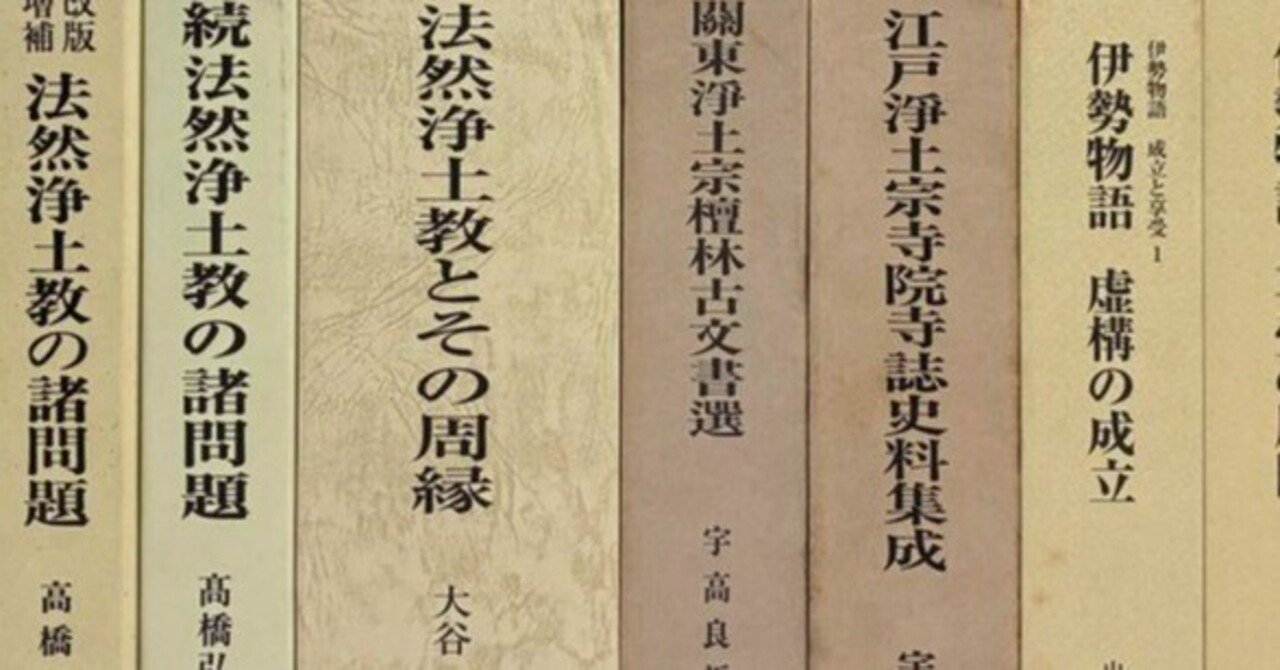 改版
増補
法然浄土教の諸問題
高橋
続法然浄土教の諸問題
髙橋弘
法然浄土教とその周縁
大谷
關東淨土宗檀林古文書選
宇高良
江戸淨土宗寺院寺誌史料集成
宇
伊勢物語 成立と享受 1
伊勢物語 虚構の成立